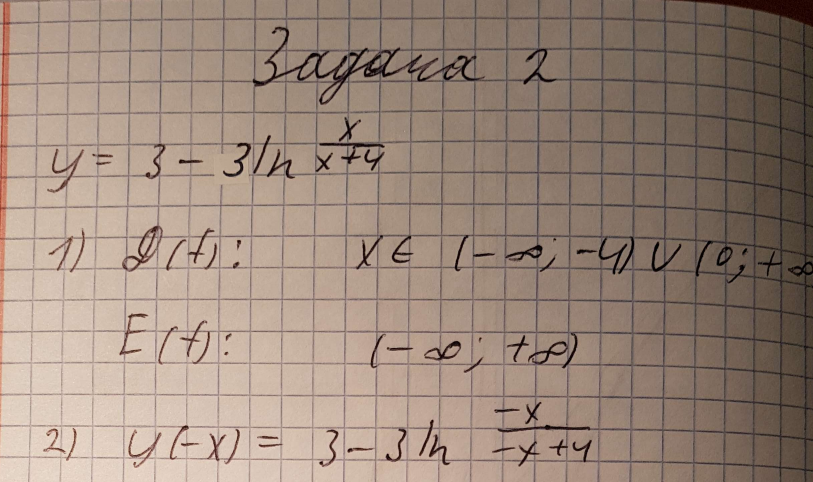 Задача 2
y = 3 - 3 ln x/(x+4)
1) D(f): x ∈ (-∞; -4) ∪ (0; +∞
E(f): (-∞; +∞)
2) y(-x) = 3 - 3 ln -x/(-x+4)